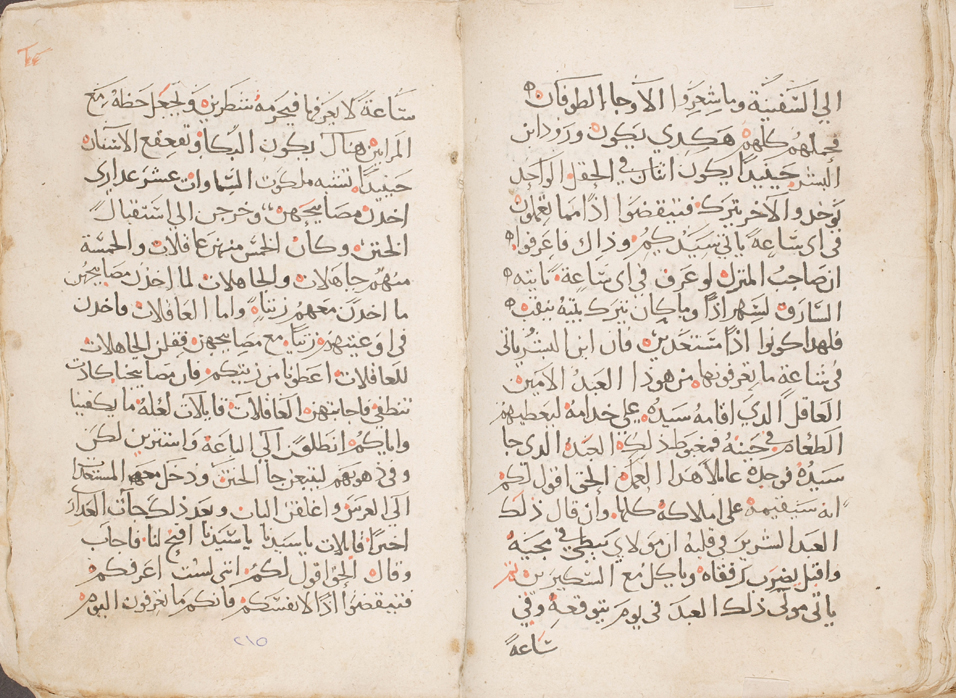 الي السفينة وما شعروا الا وجا الطوفان
فحملهم كلهم هكدي يكون ورود ابن
البشر حينيدا يكون اثنان في الحقل الواحد
يوخد والاخر يترك فتيقضوا ادا مما تعلمون
في اي ساعة ياتي سيدكم وذاك فاعرفوا
ان صاحب المنزل لو عرف في اي ساعة ياتيه
السارق لسهر ادا وما كان يترك بيته ينقب
فلهدا كونوا ادا مستعدين فان ابن البشر ياتي
في ساعة ما يعرفونها من هو دا العبد الامين
العاقل الدي اقامه سيده علي خدامه ليعطيهم
الطعام في حينه فمغبوط ذلك العبد الدي جا
سيده فوجده عاملا هدا العمل الحق اقول لكم
انه سيقيمه علي املاكه كلها وان قال ذلك
العبد الشرير في قلبه ان مولاي يبطي في مجيه
واقبل يضرب رفقاه وياكل مع السكيرين ثم
ياتي مولي ذلك العبد في يوم يتوقعه وفي
ساعة
ساعة لا يعرفها فيحرمه شطرين ويجعل حظه مع
المرايين هناك يكون البكا وتقعقع الاسنان
حينيدا تشبه ملكوت السماوات عشر عداري
اخدن مصابيحهن وخرجن الي استقبال
الختن وكان الخمس منهن عاقلات والخمسة
منهم جاهلات والجاهلات لما اخدن مصابيحهن
ما اخدن معهم زيتا واما العاقلات فاخدن
في اوعيتهن زيتا مع مصابيحهن فقلن الجاهلات
للعاقلات اعطونا من زيتكم فان مصابيحنا كادت
تنطفي فاجابتهن العاقلات قايلات لعله ما يكفينا
واياكم انطلقن الي الباعة واشترين لكن
وفي ذهوبهم ليبتعن جا الختن ودخل معه المستعدات
الي العرس واغلقن الباب وبعد ذلك جات العداري
اخيرا قايلات يا سيدنا يا سيدنا افتح لنا فاجاب
وقال الحق اقول لكم انني لست اعرفكم
فتيقضوا ادا لانفسكم فانكم ما تعرفون اليوم
٢١٥